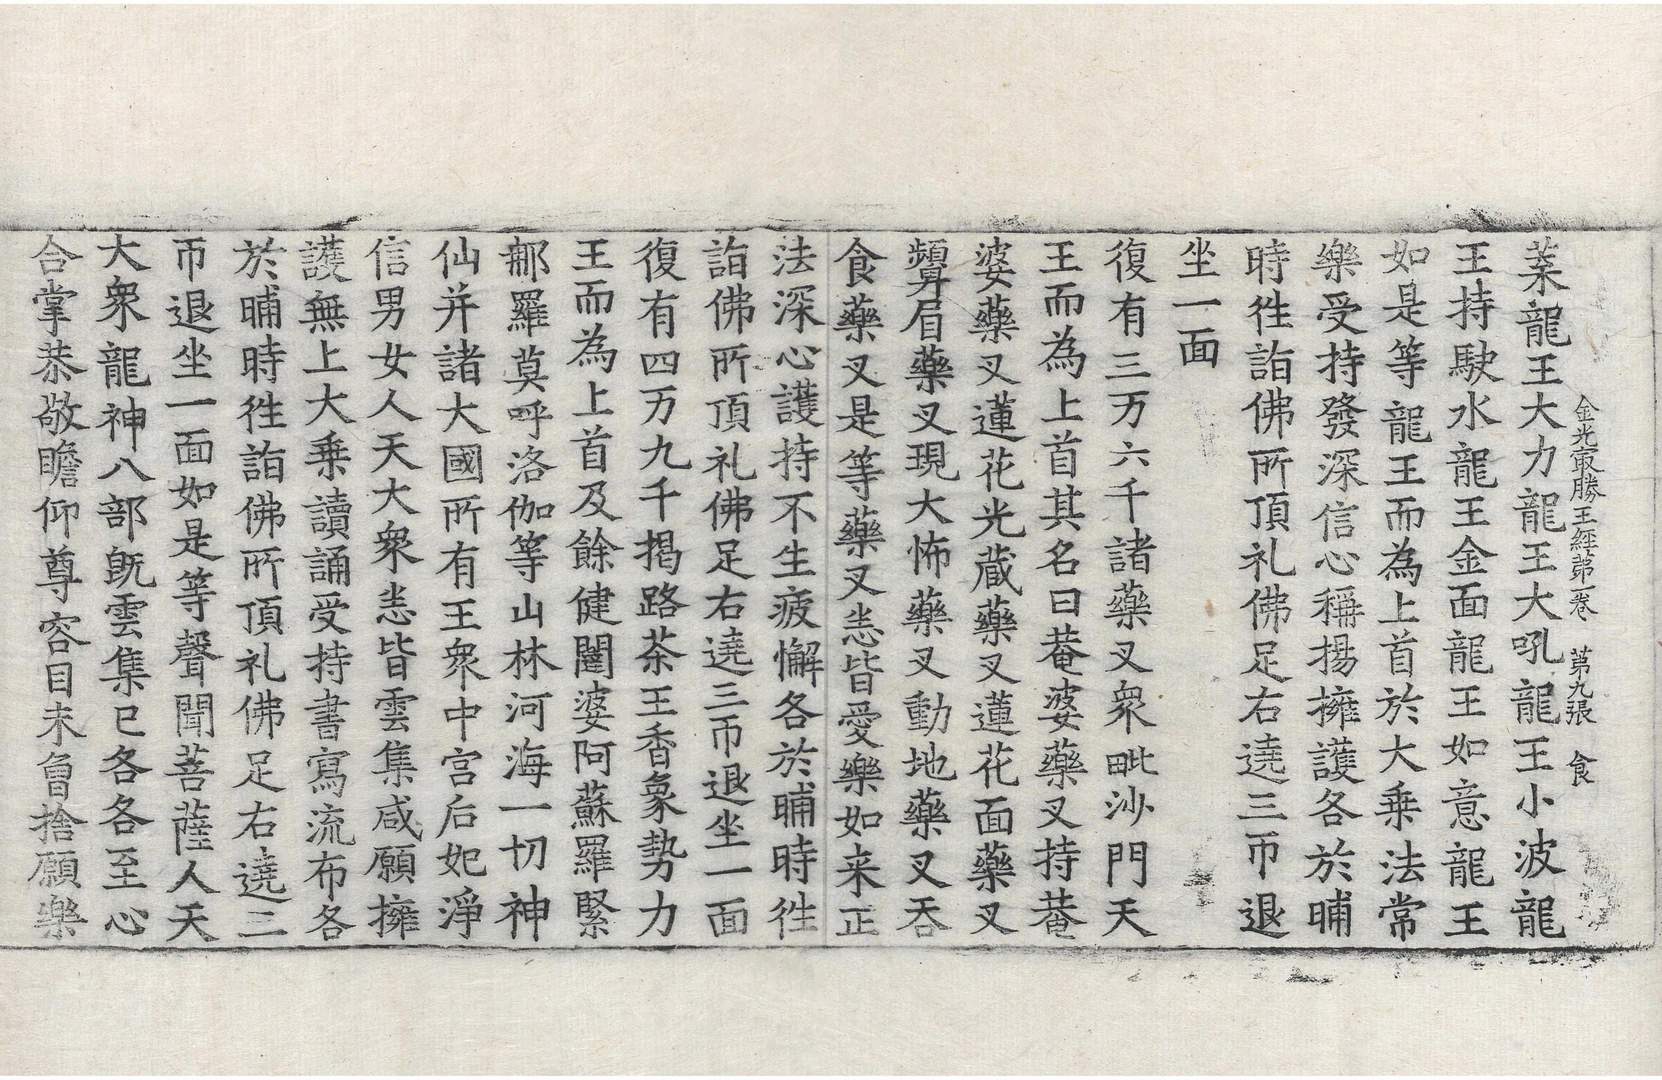 金光㝡勝王經苐一卷 苐九張 食
葉龍王大力龍王大吼龍王小波龍
王持駃水龍王金面龍王如意龍王
如是等龍王而為上首於大乗法常
樂受持發深信心稱揚擁護各於晡
時徃詣佛所頂礼佛足右遶三帀退
坐一面
復有三万六千諸藥叉衆毗沙門天
王而為上首其名曰菴婆藥叉持菴
婆藥叉蓮花光蔵藥叉蓮花面藥叉
顰眉藥叉現大怖藥叉動地藥叉吞
食藥叉是等藥叉悉皆愛樂如来正
法深心護持不生疲懈各於晡時徃
詣佛所頂礼佛足右遶三帀退坐一面
復有四万九千揭路荼王香象勢力
王而為上首及餘健闥婆阿蘇羅緊
那羅莫呼洛伽等山林河海一切神
仙并諸大國所有王衆中宫后妃淨
信男女人天大衆悉皆雲集咸願擁
護無上大乗讀誦受持書寫流布各
於晡時徃詣佛所頂礼佛足右遶三
帀退坐一面如是等聲聞菩薩人天
大衆龍神八部旣雲集已各各至心
合掌恭敬瞻仰尊容目未曾捨願樂